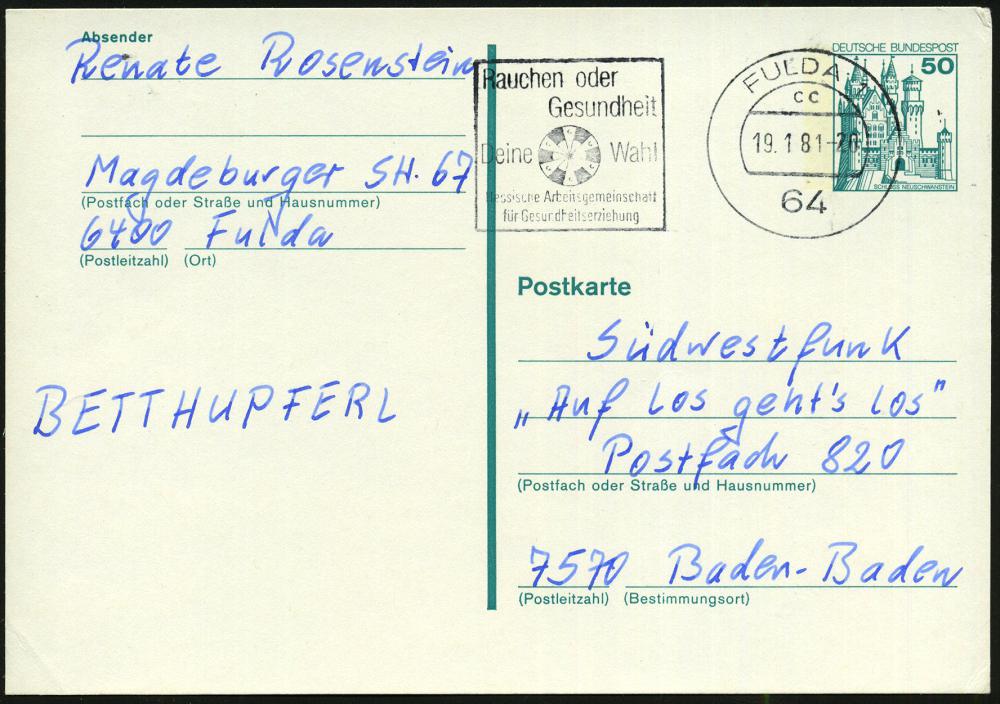 Absender
Renate Rosenstein
Magdeburger Str. 67
(Postfach oder Straße und Hausnummer)
6400 Fulda
(Postleitzahl) (Ort)
BETTHUPFERL
Rauchen oder
Gesundheit
Deine Wahl
Hessische Arbeitsgemeinschaft
für Gesundheitserziehung
FULDA 1
cc
19.1.81-20
64
DEUTSCHE BUNDESPOST
50
SCHLOSS NEUSCHWANSTEIN
Postkarte
Südwestfunk
„Auf Los geht's los"
Postfach 820
(Postfach oder Straße und Hausnummer)
7570 Baden-Baden
(Postleitzahl) (Bestimmungsort)